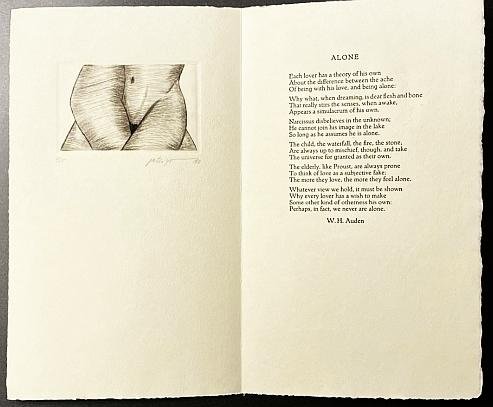 ALONE
Each lover has a theory of his own
About the difference between the ache
Of being with his love, and being alone:
Why what, when dreaming, is dear flesh and bone
That really stirs the senses, when awake,
Appears a simulacrum of his own.
Narcissus disbelieves in the unknown;
He cannot join his image in the lake
So long as he assumes he is alone.
The child, the waterfall, the fire, the stone,
Are always up to mischief, though, and take
The universe for granted as their own.
The elderly, like Proust, are always prone
To think of love as a subjective fake;
The more they love, the more they feel alone.
Whatever view we hold, it must be shown
Why every lover has a wish to make
Some other kind of otherness his own:
Perhaps, in fact, we never are alone.
W. H. Auden